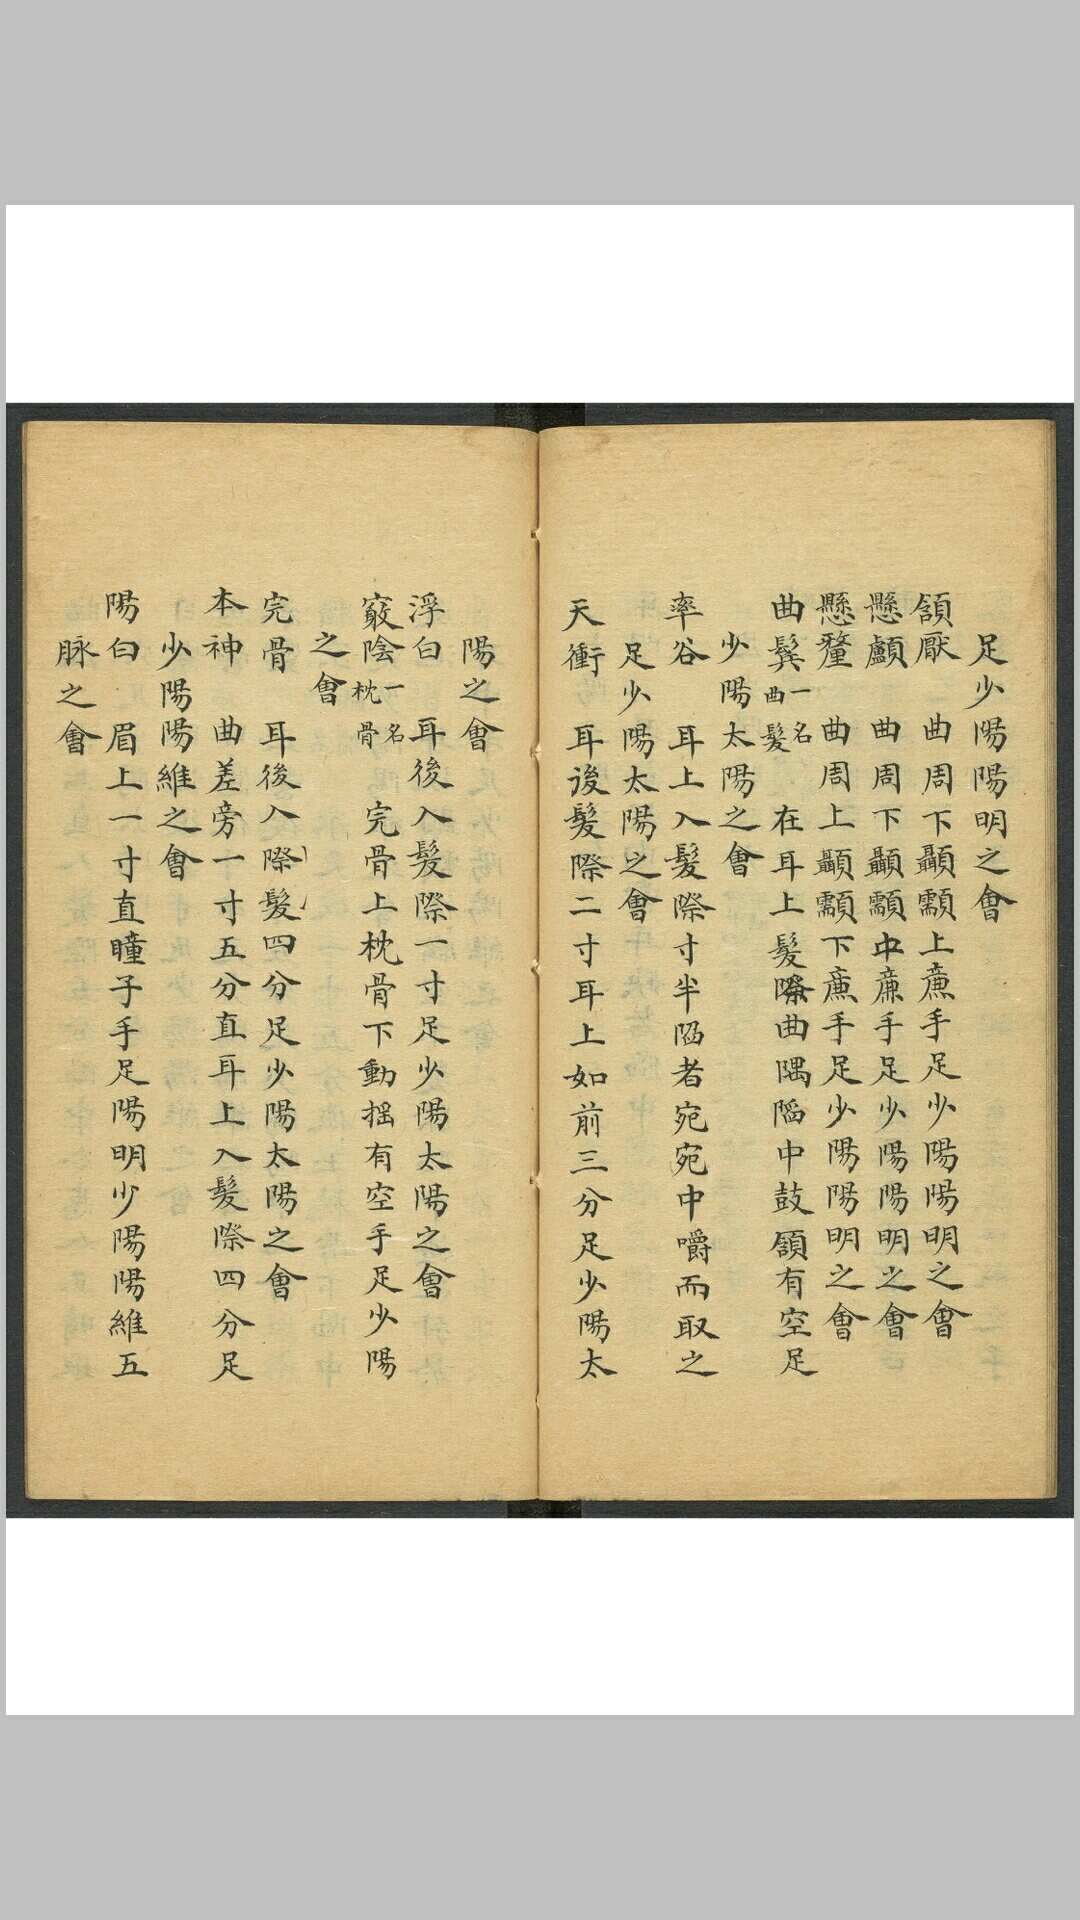 足少陽陽明之會
頷厭　曲周下顳顬上廉手足少陽陽明之會
懸顱　曲周下顳顬中廉手足少陽陽明之會
懸釐　曲周上顳顬下廉手足少陽陽明之會
曲鬢一名曲髮　在耳上髮際曲隅陷中鼓頷有空足
少陽太陽之會
率谷　耳上入髮際寸半陷者宛宛中嚼而取之
足少陽太陽之會
天衝　耳後髮際二寸耳上如前三分足少陽太
陽之會
浮白　耳後入髮際一寸足少陽太陽之會
竅陰一名枕骨　完骨上枕骨下動搖有空手足少陽
之會
完骨　耳後入際髮四分足少陽太陽之會
本神　曲差旁一寸五分直耳上入髮際四分足
少陽陽維之會
陽白　眉上一寸直瞳子手足陽明少陽陽維五
脉之會